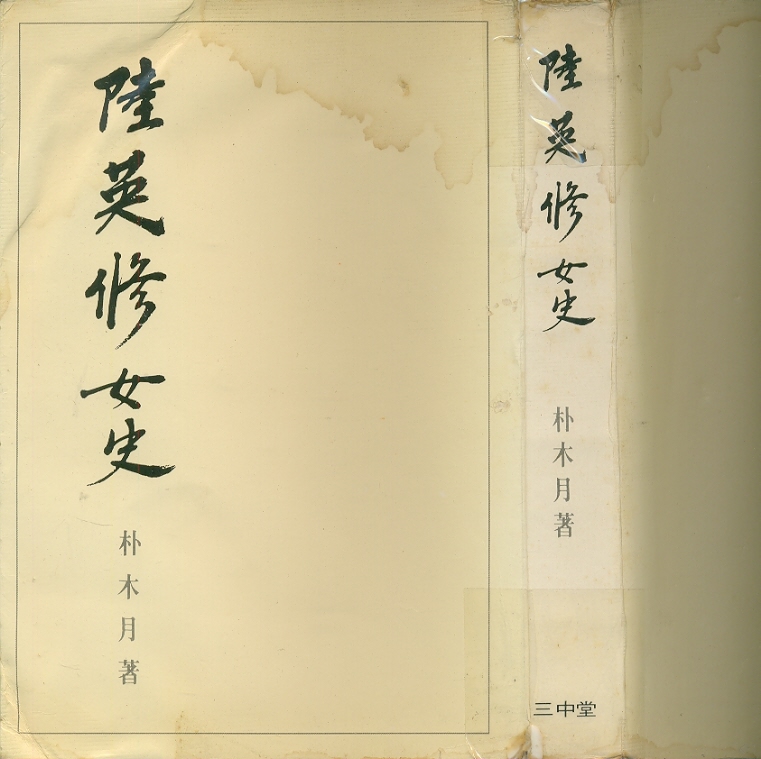 陸英修女史
朴木月著
陸英修女史
朴木月著
三中堂